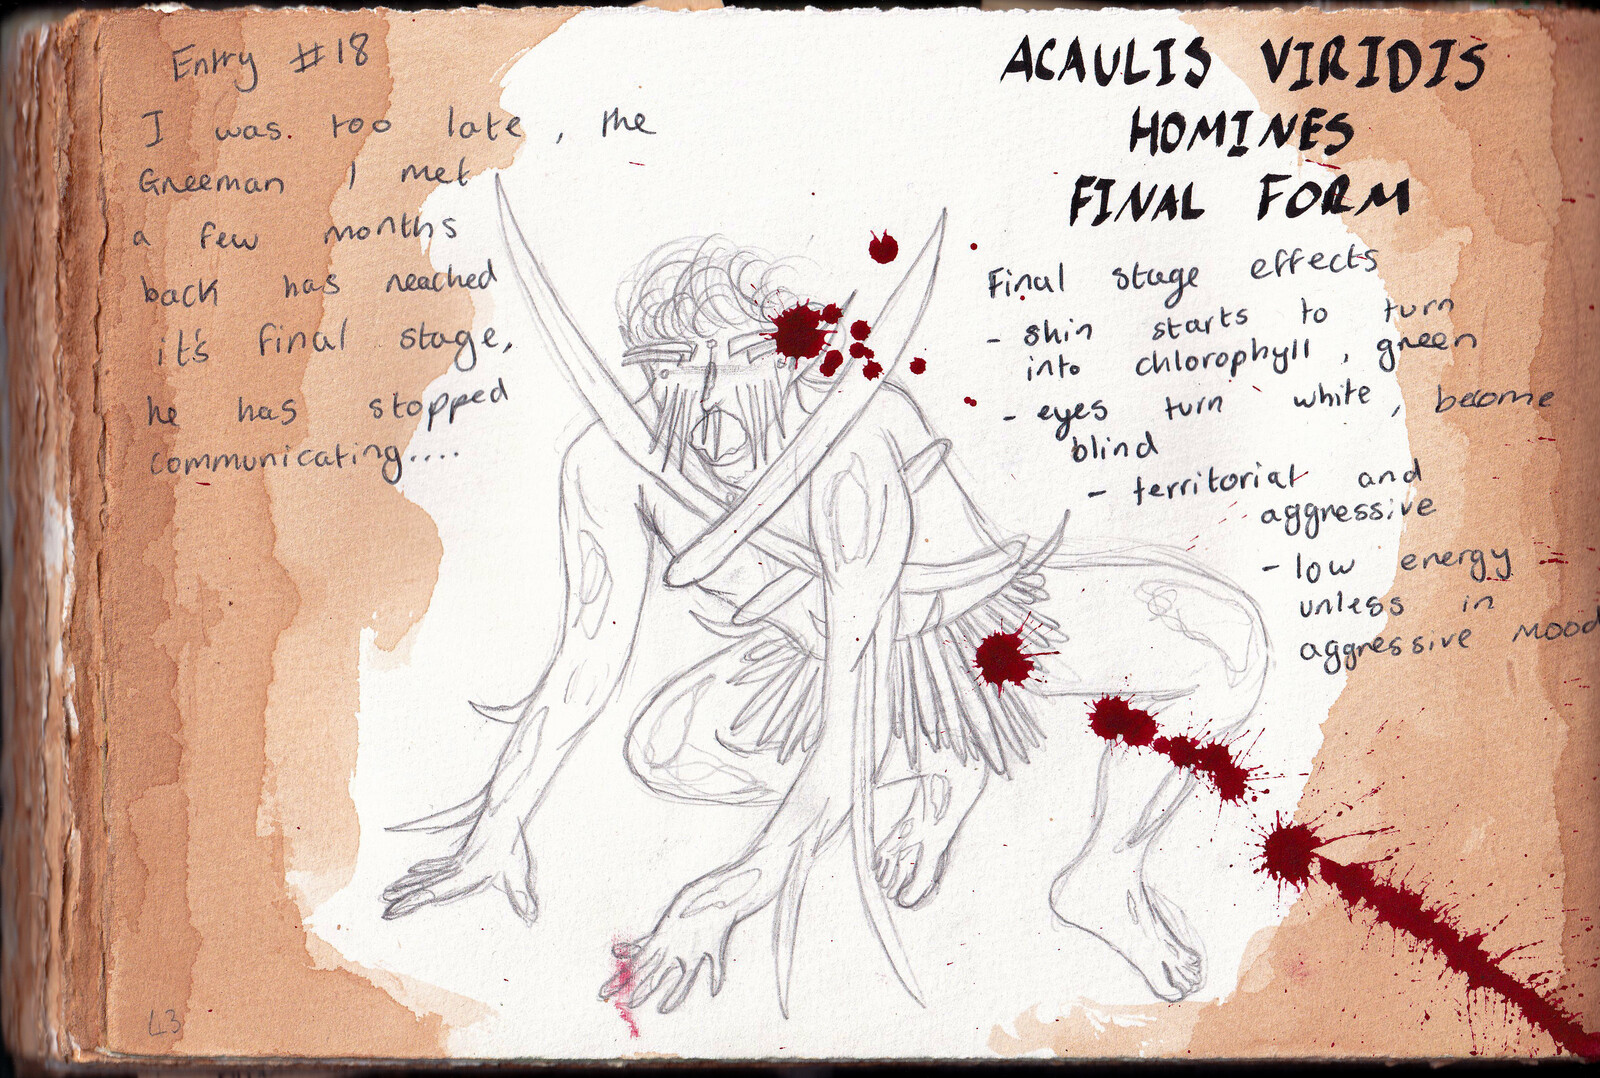 Entry #18
I was too late, the
Greeman I met
a few months
back has reached
it's final stage,
he has stopped
communicating....
ACAULIS VIRIDIS
HOMINES
FINAL FORM
Final stage effects
- skin starts to turn
into chlorophyll, green
- eyes turn white, become
blind
- territorial and
aggressive
- low energy
unless in
aggressive mood
L3